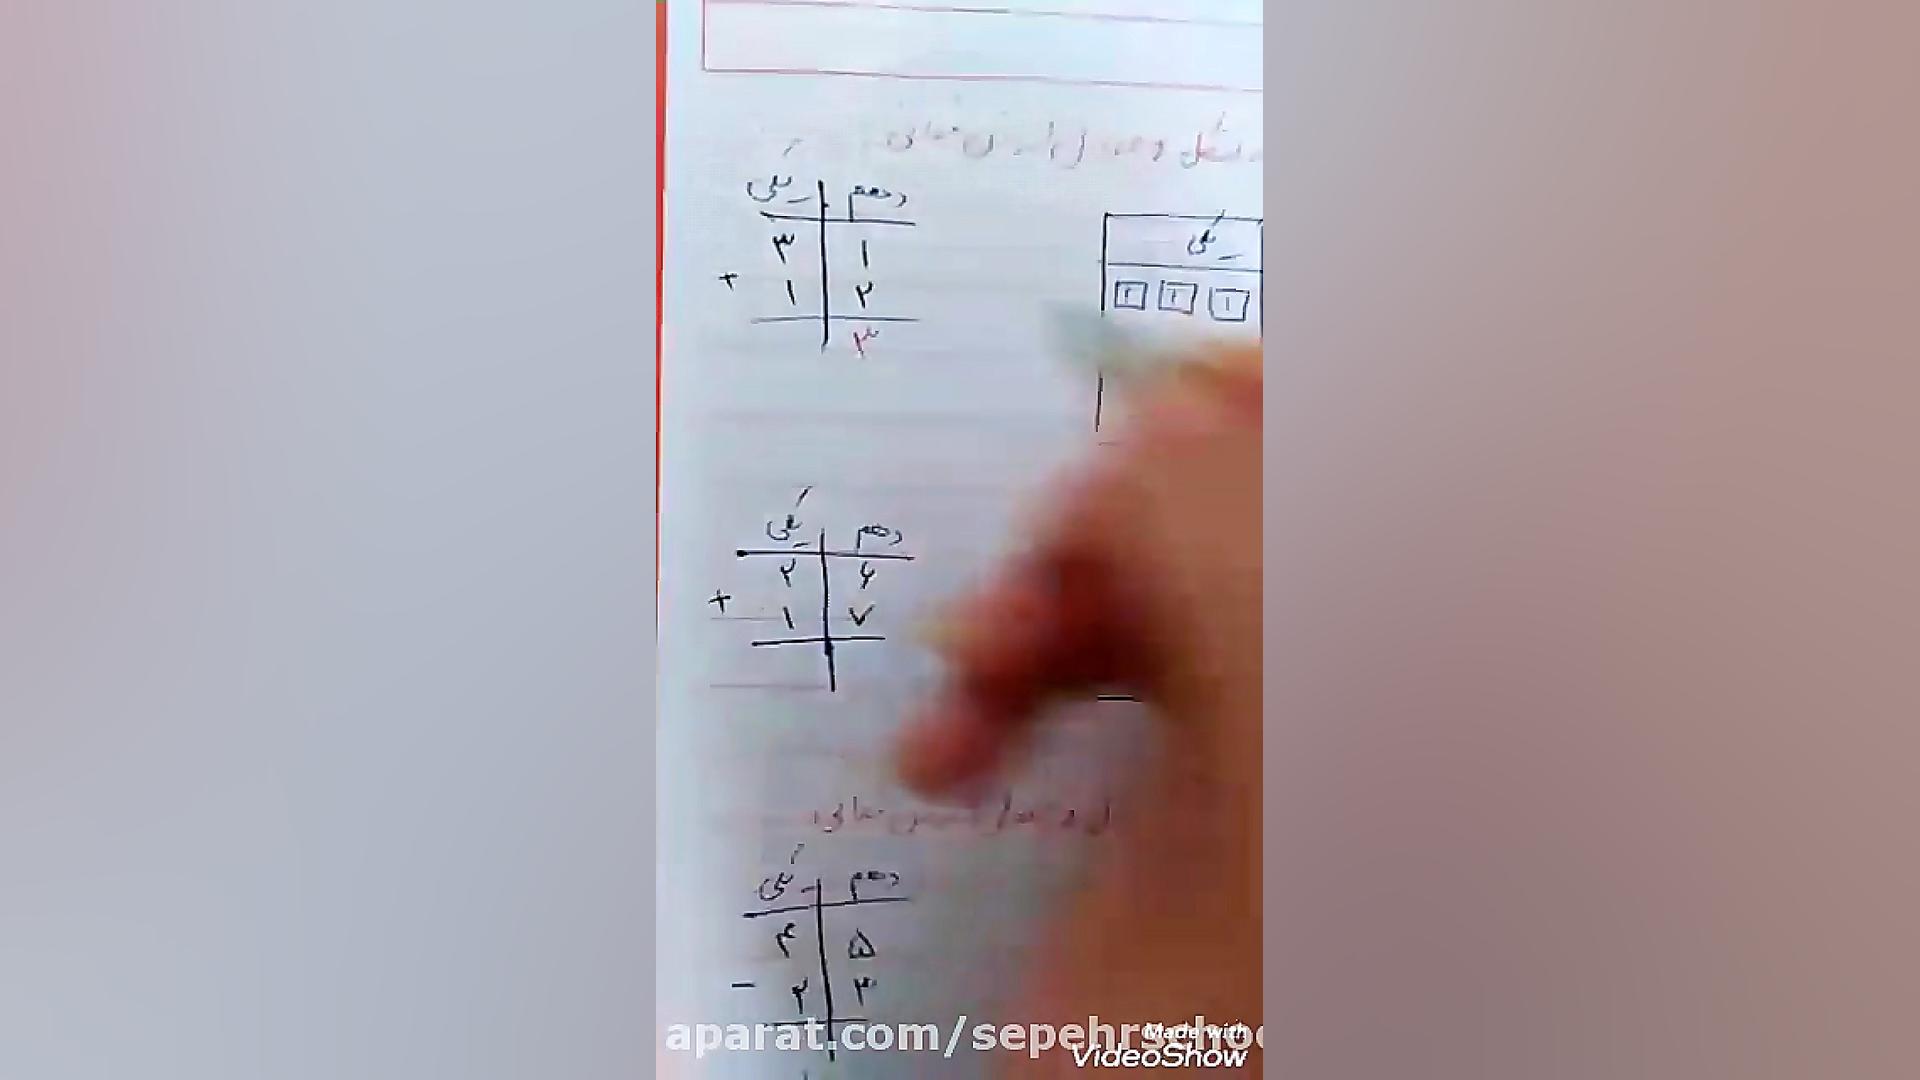 شکل و جدول
یکی دهم
۳ ۱
+ ۱ ۲
۳
یکی
۱ ۱ ۱
یکی دهم
۲ ۶
+ ۱ ۷
یکی دهم
۴ ۵
- ۲ ۳
aparat.com/sepehrschoo
Made with
VideoShow